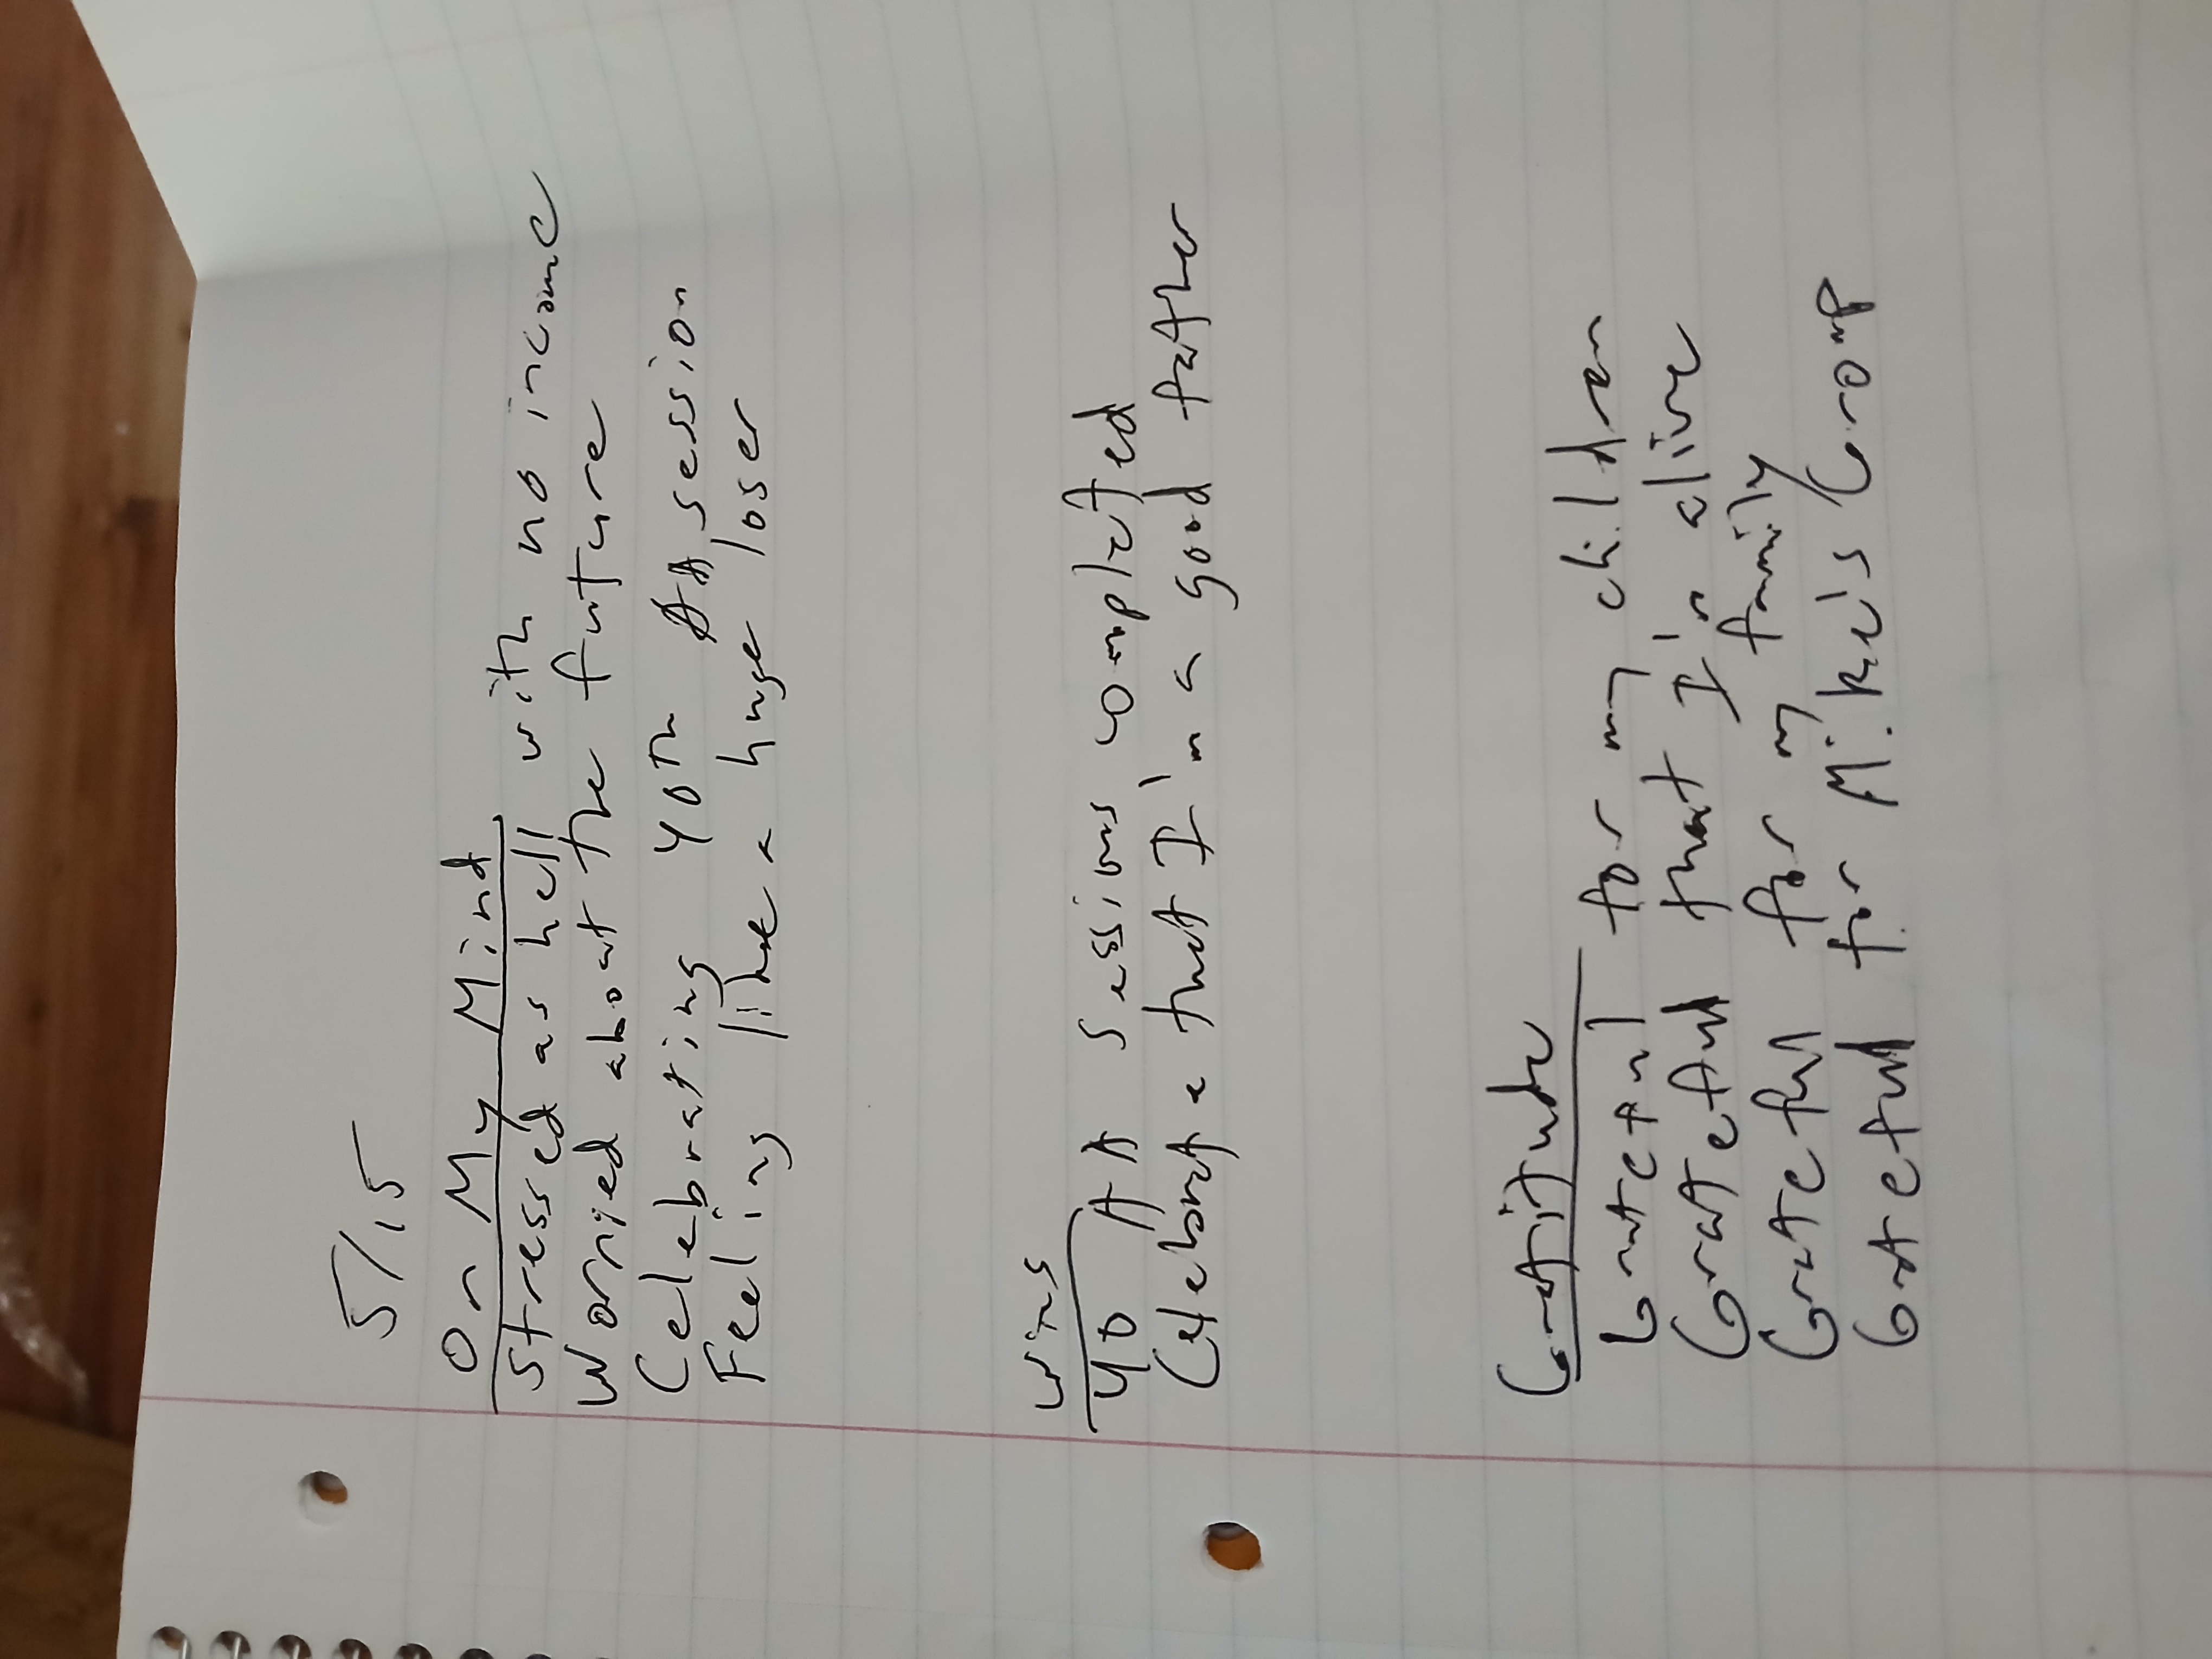 5/15
On My Mind
Stressed as hell with no income
Worried about the future
Celebrating 40th AA session
Feeling like a huge loser
Wins
40 AA sessions completed
Celebrate that I'm a good father
Gratitude
Grateful for my children
Grateful that I'm alive
Grateful for my family
Grateful for Mike's Group